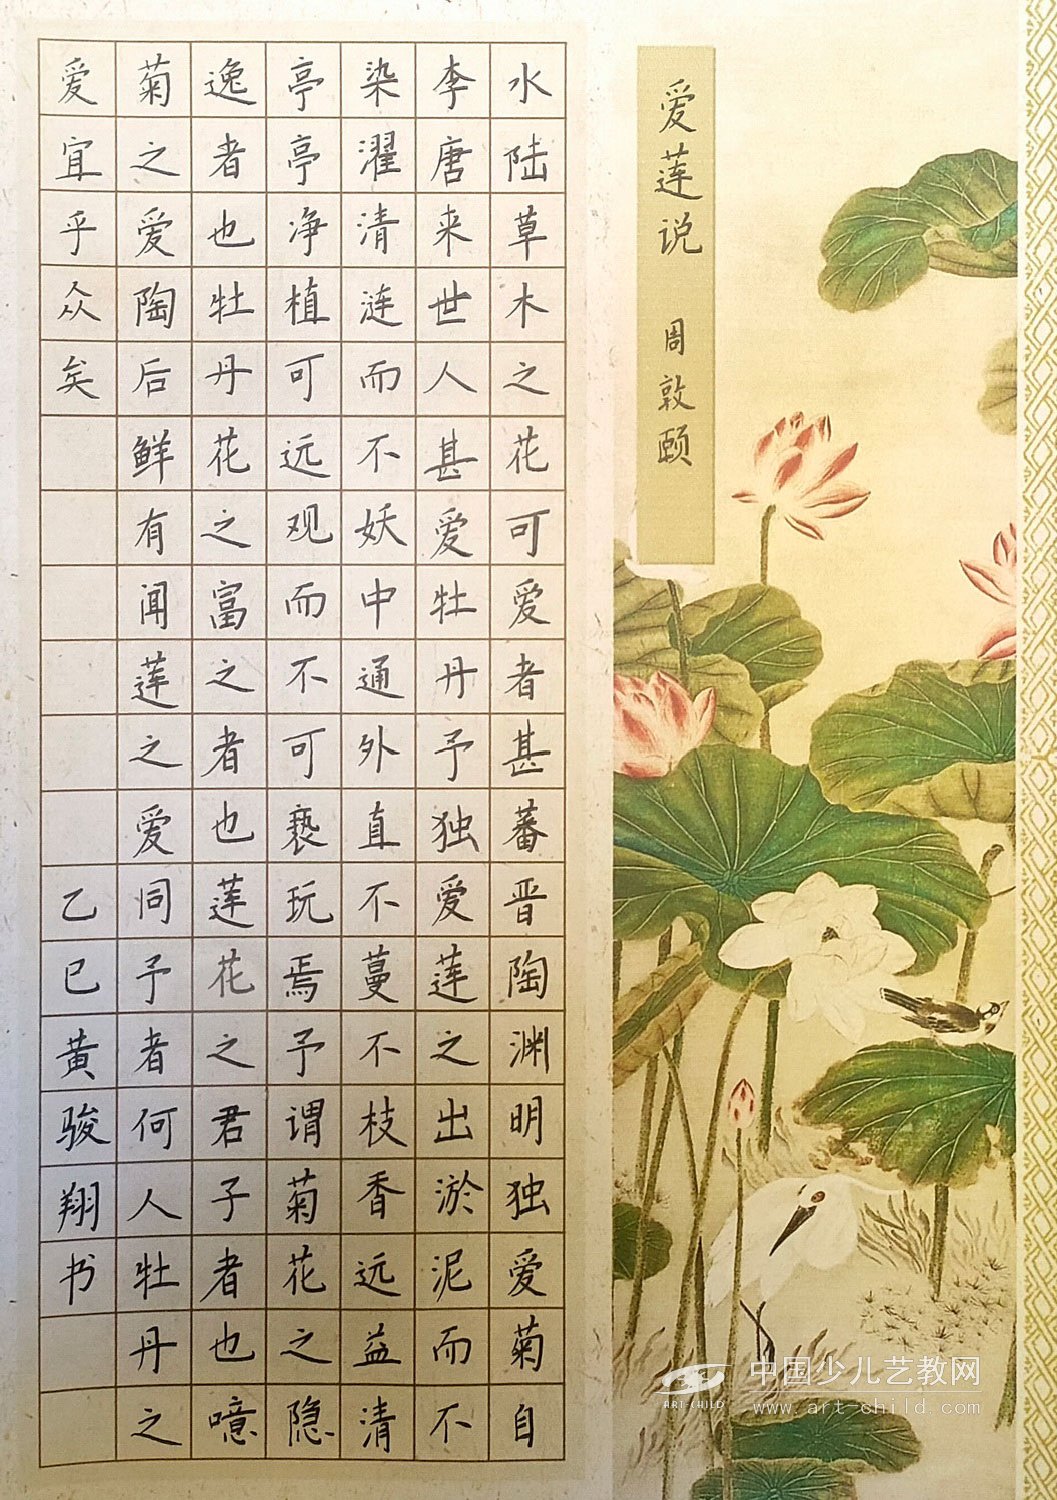 爱莲说 周敦颐
水陆草木之花可爱者甚蕃晋陶渊明独爱菊自
李唐来世人甚爱牡丹予独爱莲之出淤泥而不
染濯清涟而不妖中通外直不蔓不枝香远益清
亭亭净植可远观而不可亵玩焉予谓菊花之隐
逸者也牡丹花之富之者也莲花之君子者也噫
菊之爱陶后鲜有闻莲之爱同予者何人牡丹之
爱宜乎众矣 乙巳黄骏翔书
ART CHILD 中国少儿艺教网
www.art-child.com